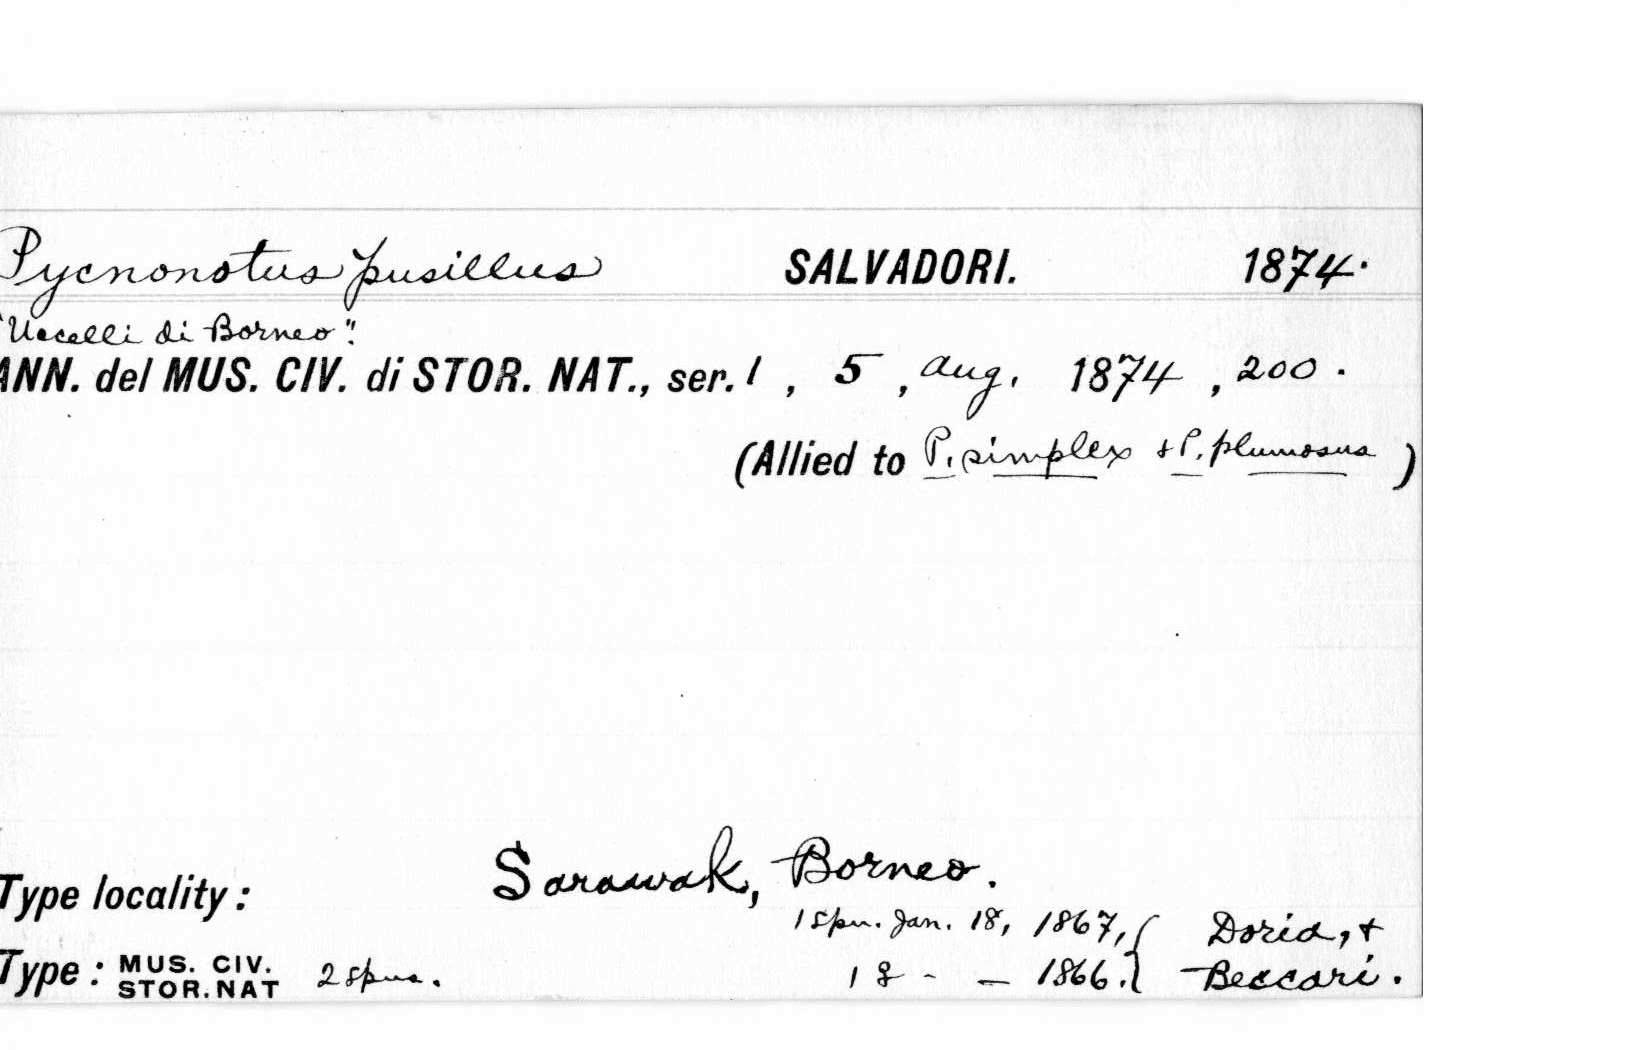 Pycnonotus pusillus SALVADORI. 1874.
"Uccelli di Borneo".
ANN. del MUS. CIV. di STOR. NAT., ser. 1, 5, Aug. 1874, 200.
(Allied to P. simplex + P. plumosus)
Type locality: Sarawak, Borneo.
1 spm. Jan. 18, 1867, { Doria, +
Type: MUS. CIV. STOR. NAT 2 spms. 1 - — 1866. } Beccari.